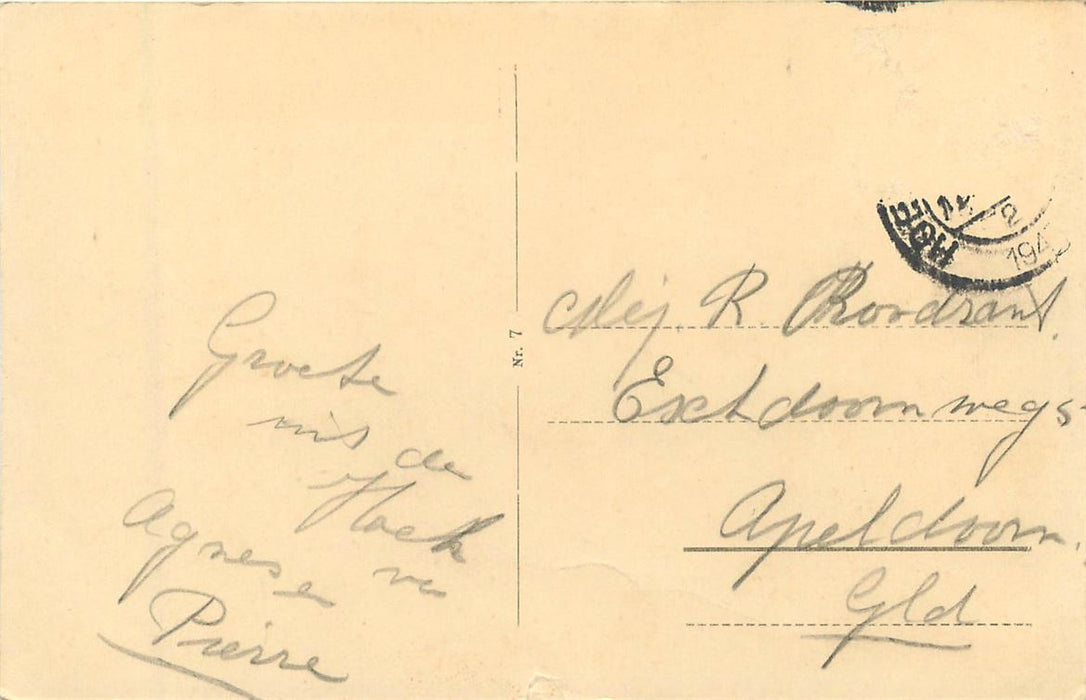 Groete
uit de
Hoek
van
Agnes en
Pierre
Nr. 7
194
Mej. R. Roodzant.
Apeldoorn.
Gld